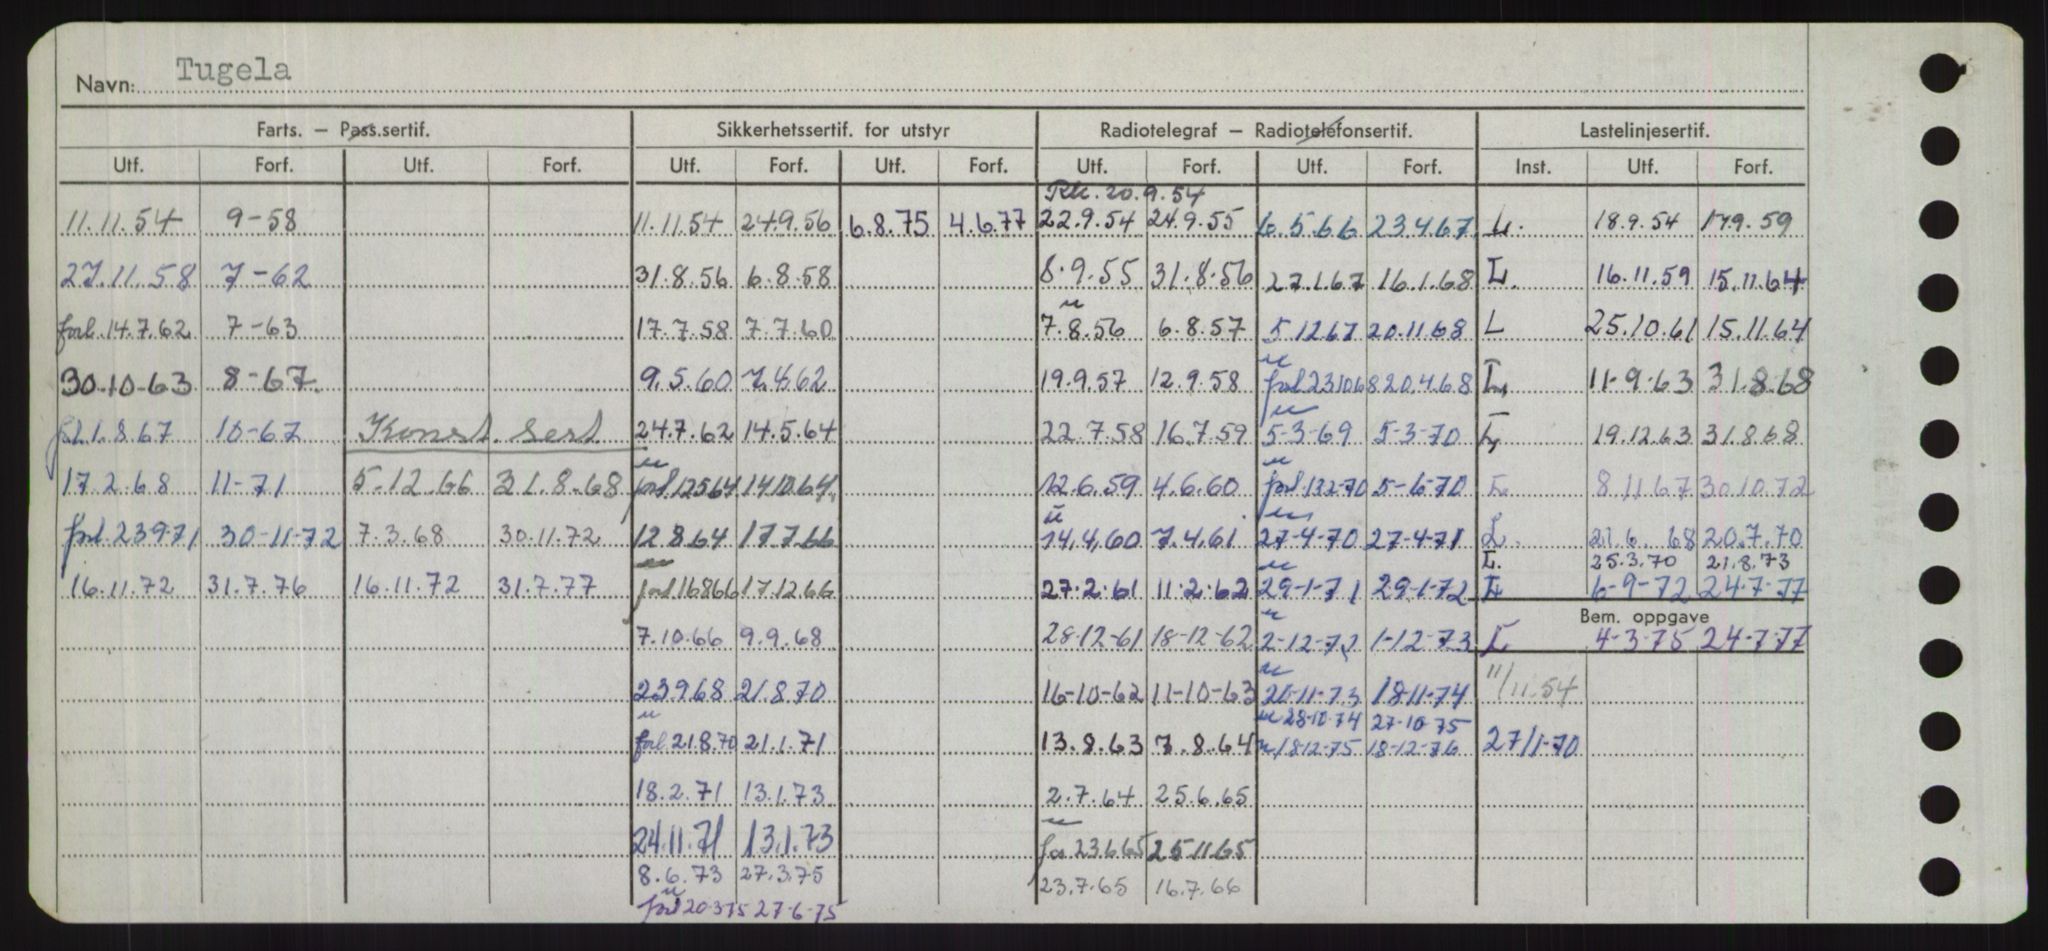 Navn: Tugela
Farts. – Pass.sertif. Sikkerhetssertif. for utstyr Radiotelegraf – Radiotelefonsertif. Lastelinjesertif.
Utf. Forf. Utf. Forf. Utf. Forf. Utf. Forf. Utf. Forf. Utf. Forf. Inst. Utf. Forf.
Rk. 20.9.54
11.11.54 9-58 11.11.54 24.9.56 6.8.75 4.6.77 22.9.54 24.9.55 6.5.66 23.4.67 L. 18.9.54 17.9.59
27.11.58 7-62 31.8.56 6.8.58 8.9.55 31.8.56 27.1.67 16.1.68 L. 16.11.59 15.11.64
forl. 14.7.62 7-63 17.7.58 7.7.60 7.8.56 6.8.57 5.12.67 20.11.68 L 25.10.61 15.11.64
30.10.63 8-67 9.5.60 7.4.62 19.9.57 12.9.58 forl 23.10.68 20.4.68 L 11-9-63 31.8.68
forl. 1.8.67 10-67 Konst. sert 24.7.62 14.5.64 22.7.58 16.7.59 5-3-69 5-3-70 L 19.12.63 31.8.68
17.2.68 11-71 5.12.66 31.8.68 forl. 12.5.64 14.10.64 12.6.59 4.6.60 forl. 13.2-70 5-6-70 L 8.11.67 30.10.72
forl. 23.9.71 30-11-72 7.3.68 30.11.72 12.8.64 17.7.66 14.4.60 7.4.61 27-4-70 27-4-71 L. 21.6.68 20.7.70
L. 25.3.70 21.8.73
16.11.72 31.7.76 16.11.72 31.7.77 forl 16.8.66 17.12.66 27.2.61 11.2.62 29-1-71 29-1-72 L 6-9-72 24-7-77
Bem. oppgave
7.10.66 9.9.68 28-12-61 18-12-62 2-12-72 1-12-73 L 4-3-75 24-7-77
23.9.68 21.8.70 16-10-62 11-10-63 20-11-73 18-11-74 11/11.54
28-10-74 27-10-75
forl. 21.8.70 21.1.71 13.8.63 7.8.64 18-12-75 18-12-76 27/1-70
18.2.71 13.1.73 2.7.64 25.6.65
24.11.71 13.1.73 for 23.6.65 25.11.65
8.6.73 27.3.75 23.7.65 16.7.66
forl 20-3-75 27-6-75